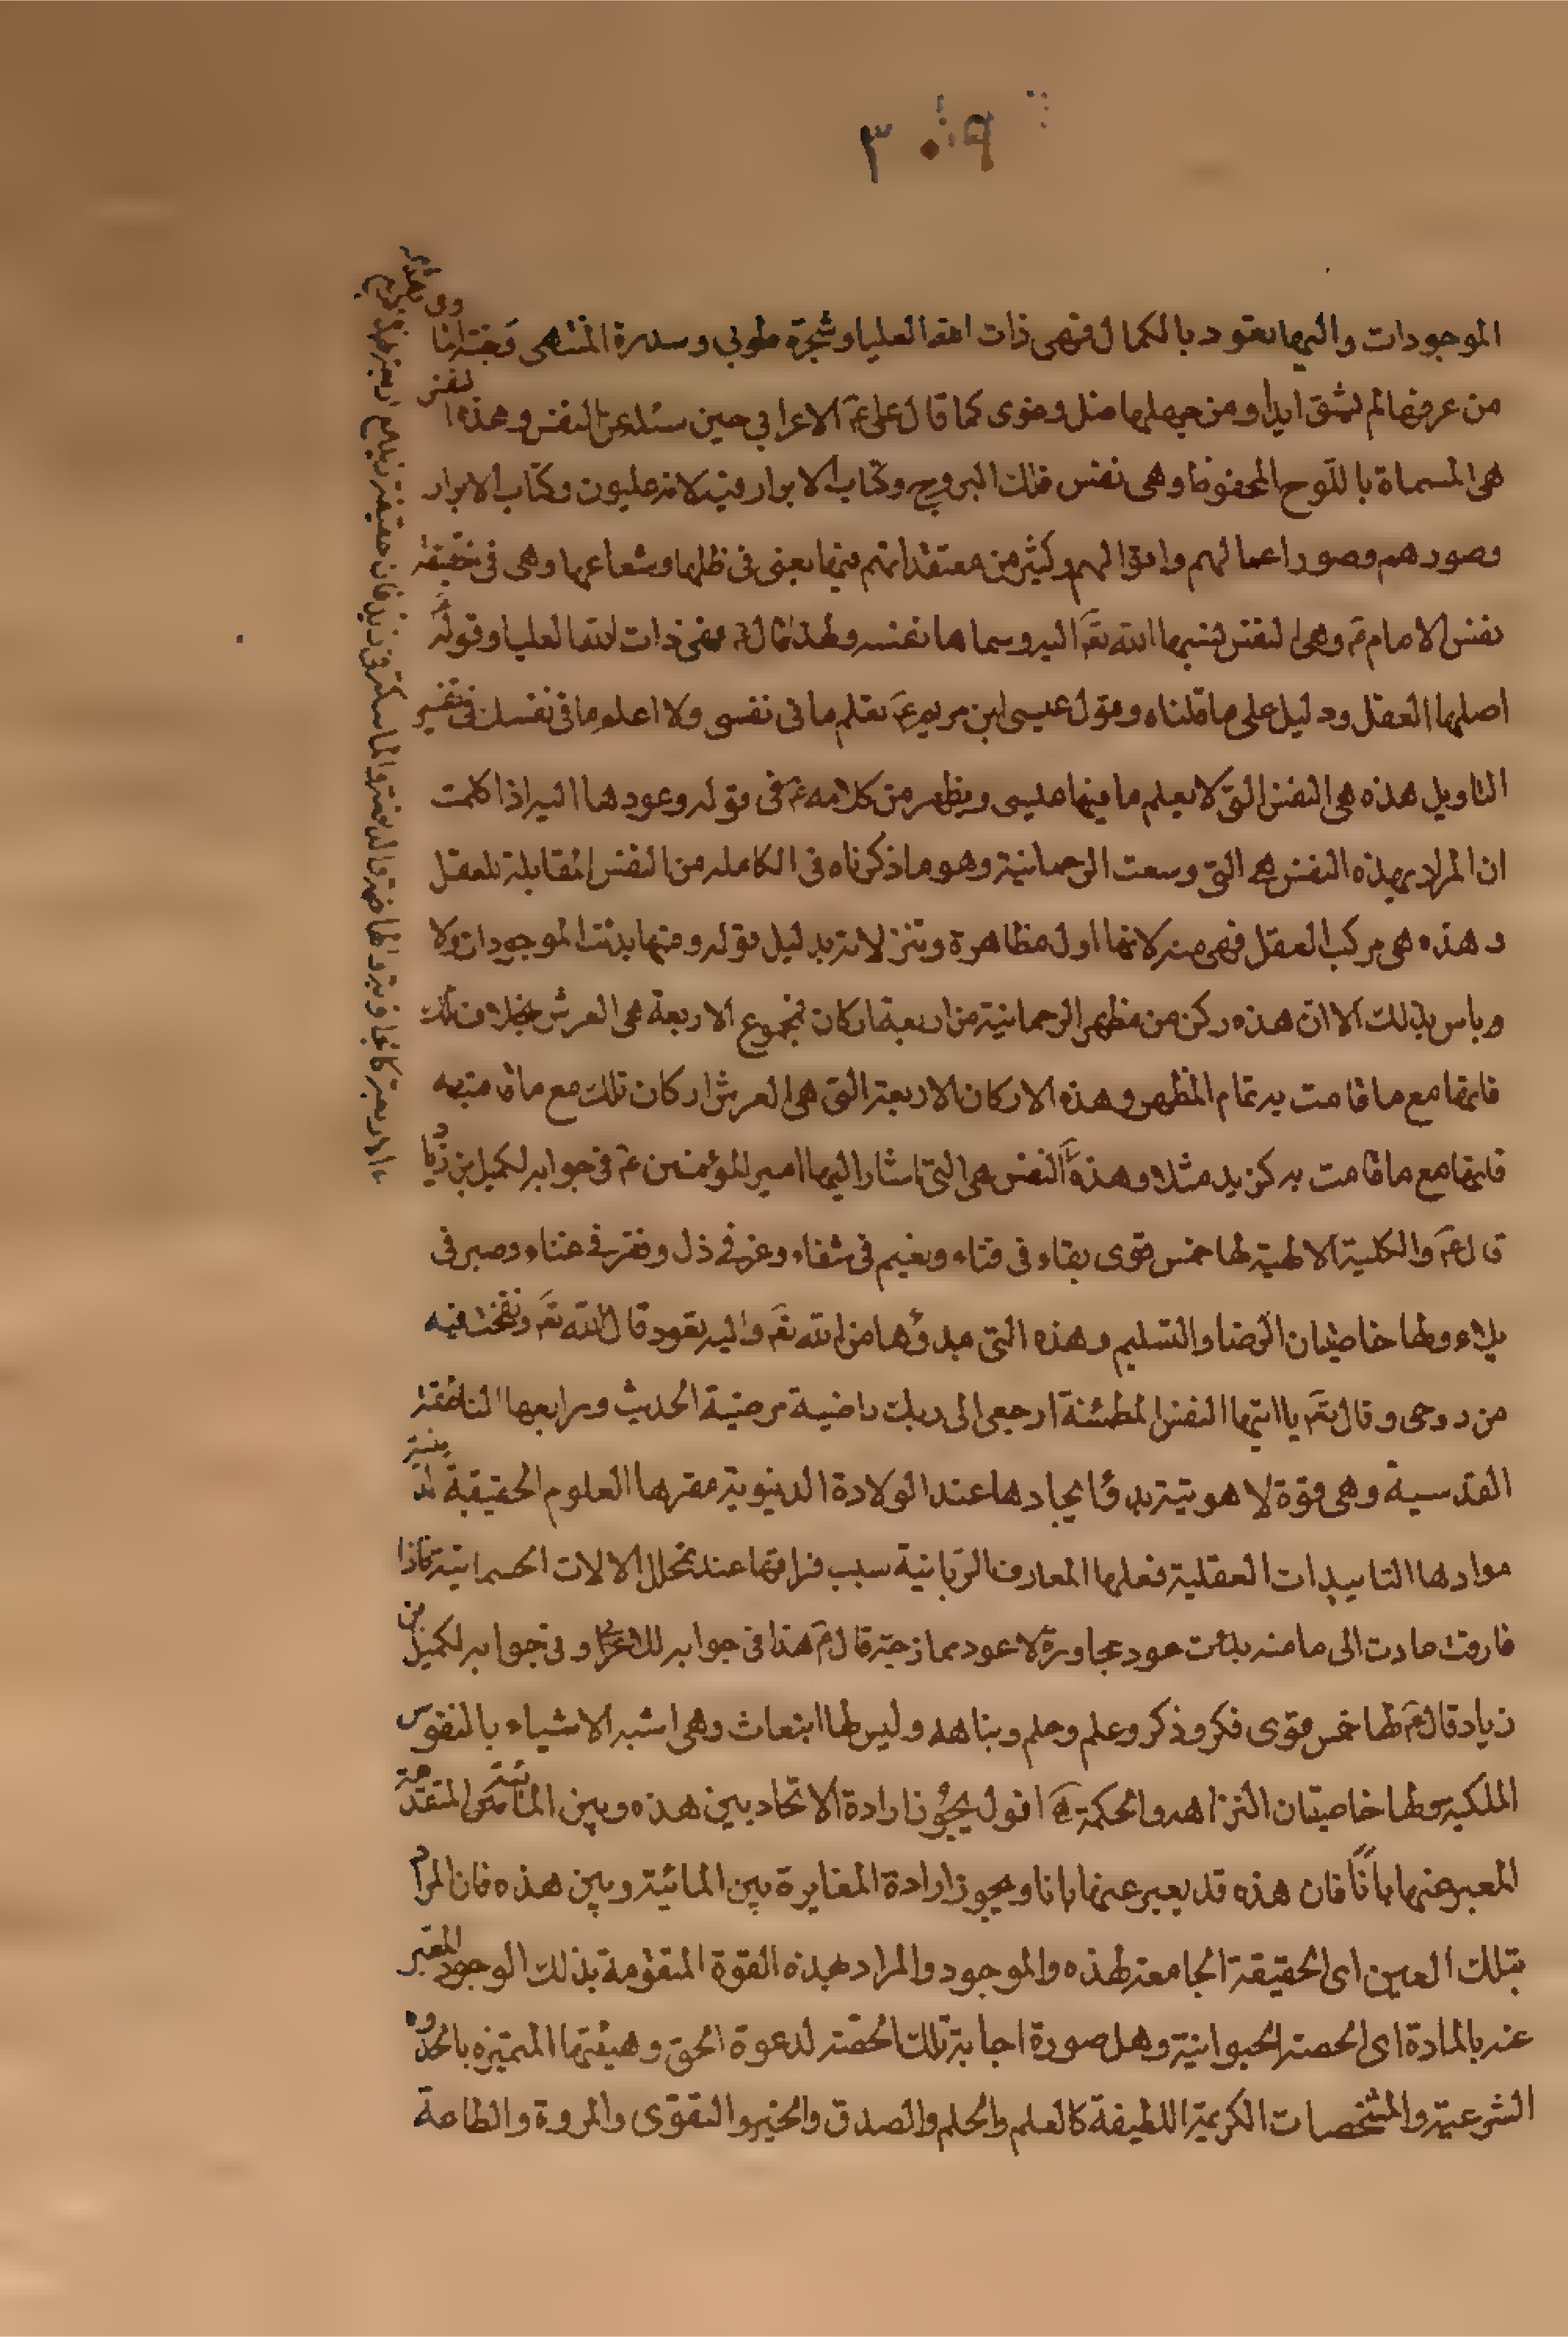 ٣٠٩
الموجودات واليها تعود بالكمال فهى ذات الله العليا وشجرة طوبى وسدرة المنتهى وجنة المأ
من عرفها لم يشق ابدا ومن جهلها ضل وغوى كما قال على ع الاعرابي حين سئله عن النفس وهذه النفس
هى المسماة باللوح المحفوظ وهى نفس فلك البروج وكتاب الابرار فيه لانه عليون وكتاب الابرار
وصورهم وصور اعمالهم واقوالهم وكثير من معتقداتهم فيها يعنى فى ظلها وشعاعها وهى فى حقيقة
نفس الامام ع وهى النفس نسبها الله تع اليه وسماها نفسه ولهذا قال ع فهى ذات الله العليا وقوله
اصلها العقل ودليل على ما قلناه وقول عيسى ابن مريم ع تعلم ما فى نفسى ولا اعلم ما فى نفسك فى تفسير
التاويل هذه هى النفس التى لا يعلم ما فيها عيسى ويظهر من كلامه ع فى قوله وعودها اليه اذا كملت
ان المراد بهذه النفس هى التى وسعت الرحمانية وهو ما ذكرناه فى الكامله من النفس المقابلة للعقل
وهذه هى مركب العقل فهى منه لانها اول مظاهره وتنزلاته بدليل قوله ومنها بدئت الموجودات ولا
وباس بذلك الا ان هذه ركن من مظهر الرحمانية من اربعة اركان مجموع الاربعة هى العرش بخلاف تلك
فانها مع ما قامت به تمام المظهر وهذه الاركان الاربعة التى هى العرش اركان تلك مع ما قامت به
فانها مع ما قامت به كزيد مثلا وهذه النفس هى التى اشار اليها امير المؤمنين ع فى جوابه لكميل بن زياد
قال ع والكلية الالهية لها خمس قوى بقاء فى فناء ونعيم فى شقاء وعز فى ذل وفقر فى غناء وصبر فى
بلاء ولها خاصيتان الرضا والتسليم وهذه التى مبدؤها من الله تع واليه تعود قال الله تع ونفخت فيه
من روحى وقال تع يا ايتها النفس المطمئنة ارجعى الى ربك راضية مرضية الحديث ورابعها الناطقة
القدسية وهى قوة لاهوتية بدؤ ايجادها عند الولادة الدنيوية مقرها العلوم الحقيقية الدينية
موادها التاييدات العقلية فعلها المعارف الربانية سبب فراقها عند تحلل الالات الجسمانية فاذا
فارقت عادت الى ما منه بدئت عود مجاورة لا عود ممازجة قال ع هذا فى جوابه للاعرابي وفى جوابه لكميل بن
زياد قال ع لها خمس قوى فكر وذكر وعلم وحلم ونباهه وليس لها انبعاث وهى اشبه الاشياء بالنفوس
الملكية ولها خاصيتان النزاهه والحكمة اقول يجوز ارادة الاتحاد بين هذه وبين المتقدمة
المعبر عنها بانا فان هذه قد يعبر عنها بانا ويجوز ارادة المغايرة بين المائية وبين هذه فان المراد
بتلك العين اى الحقيقة الجامعة لهذه والموجود والمراد بهذه القوة المتقومة بذلك الوجود المعبر
عنه بالمادة اى الحصة الحيوانية وهل صورة اجابة تلك الحصة لدعوة الحق وهيئتها المتميزه بالحدود
الشرعية والمشخصات الكريمة اللطيفة كالعلم والحلم والصدق والخير والتقوى والمروة والطاعة